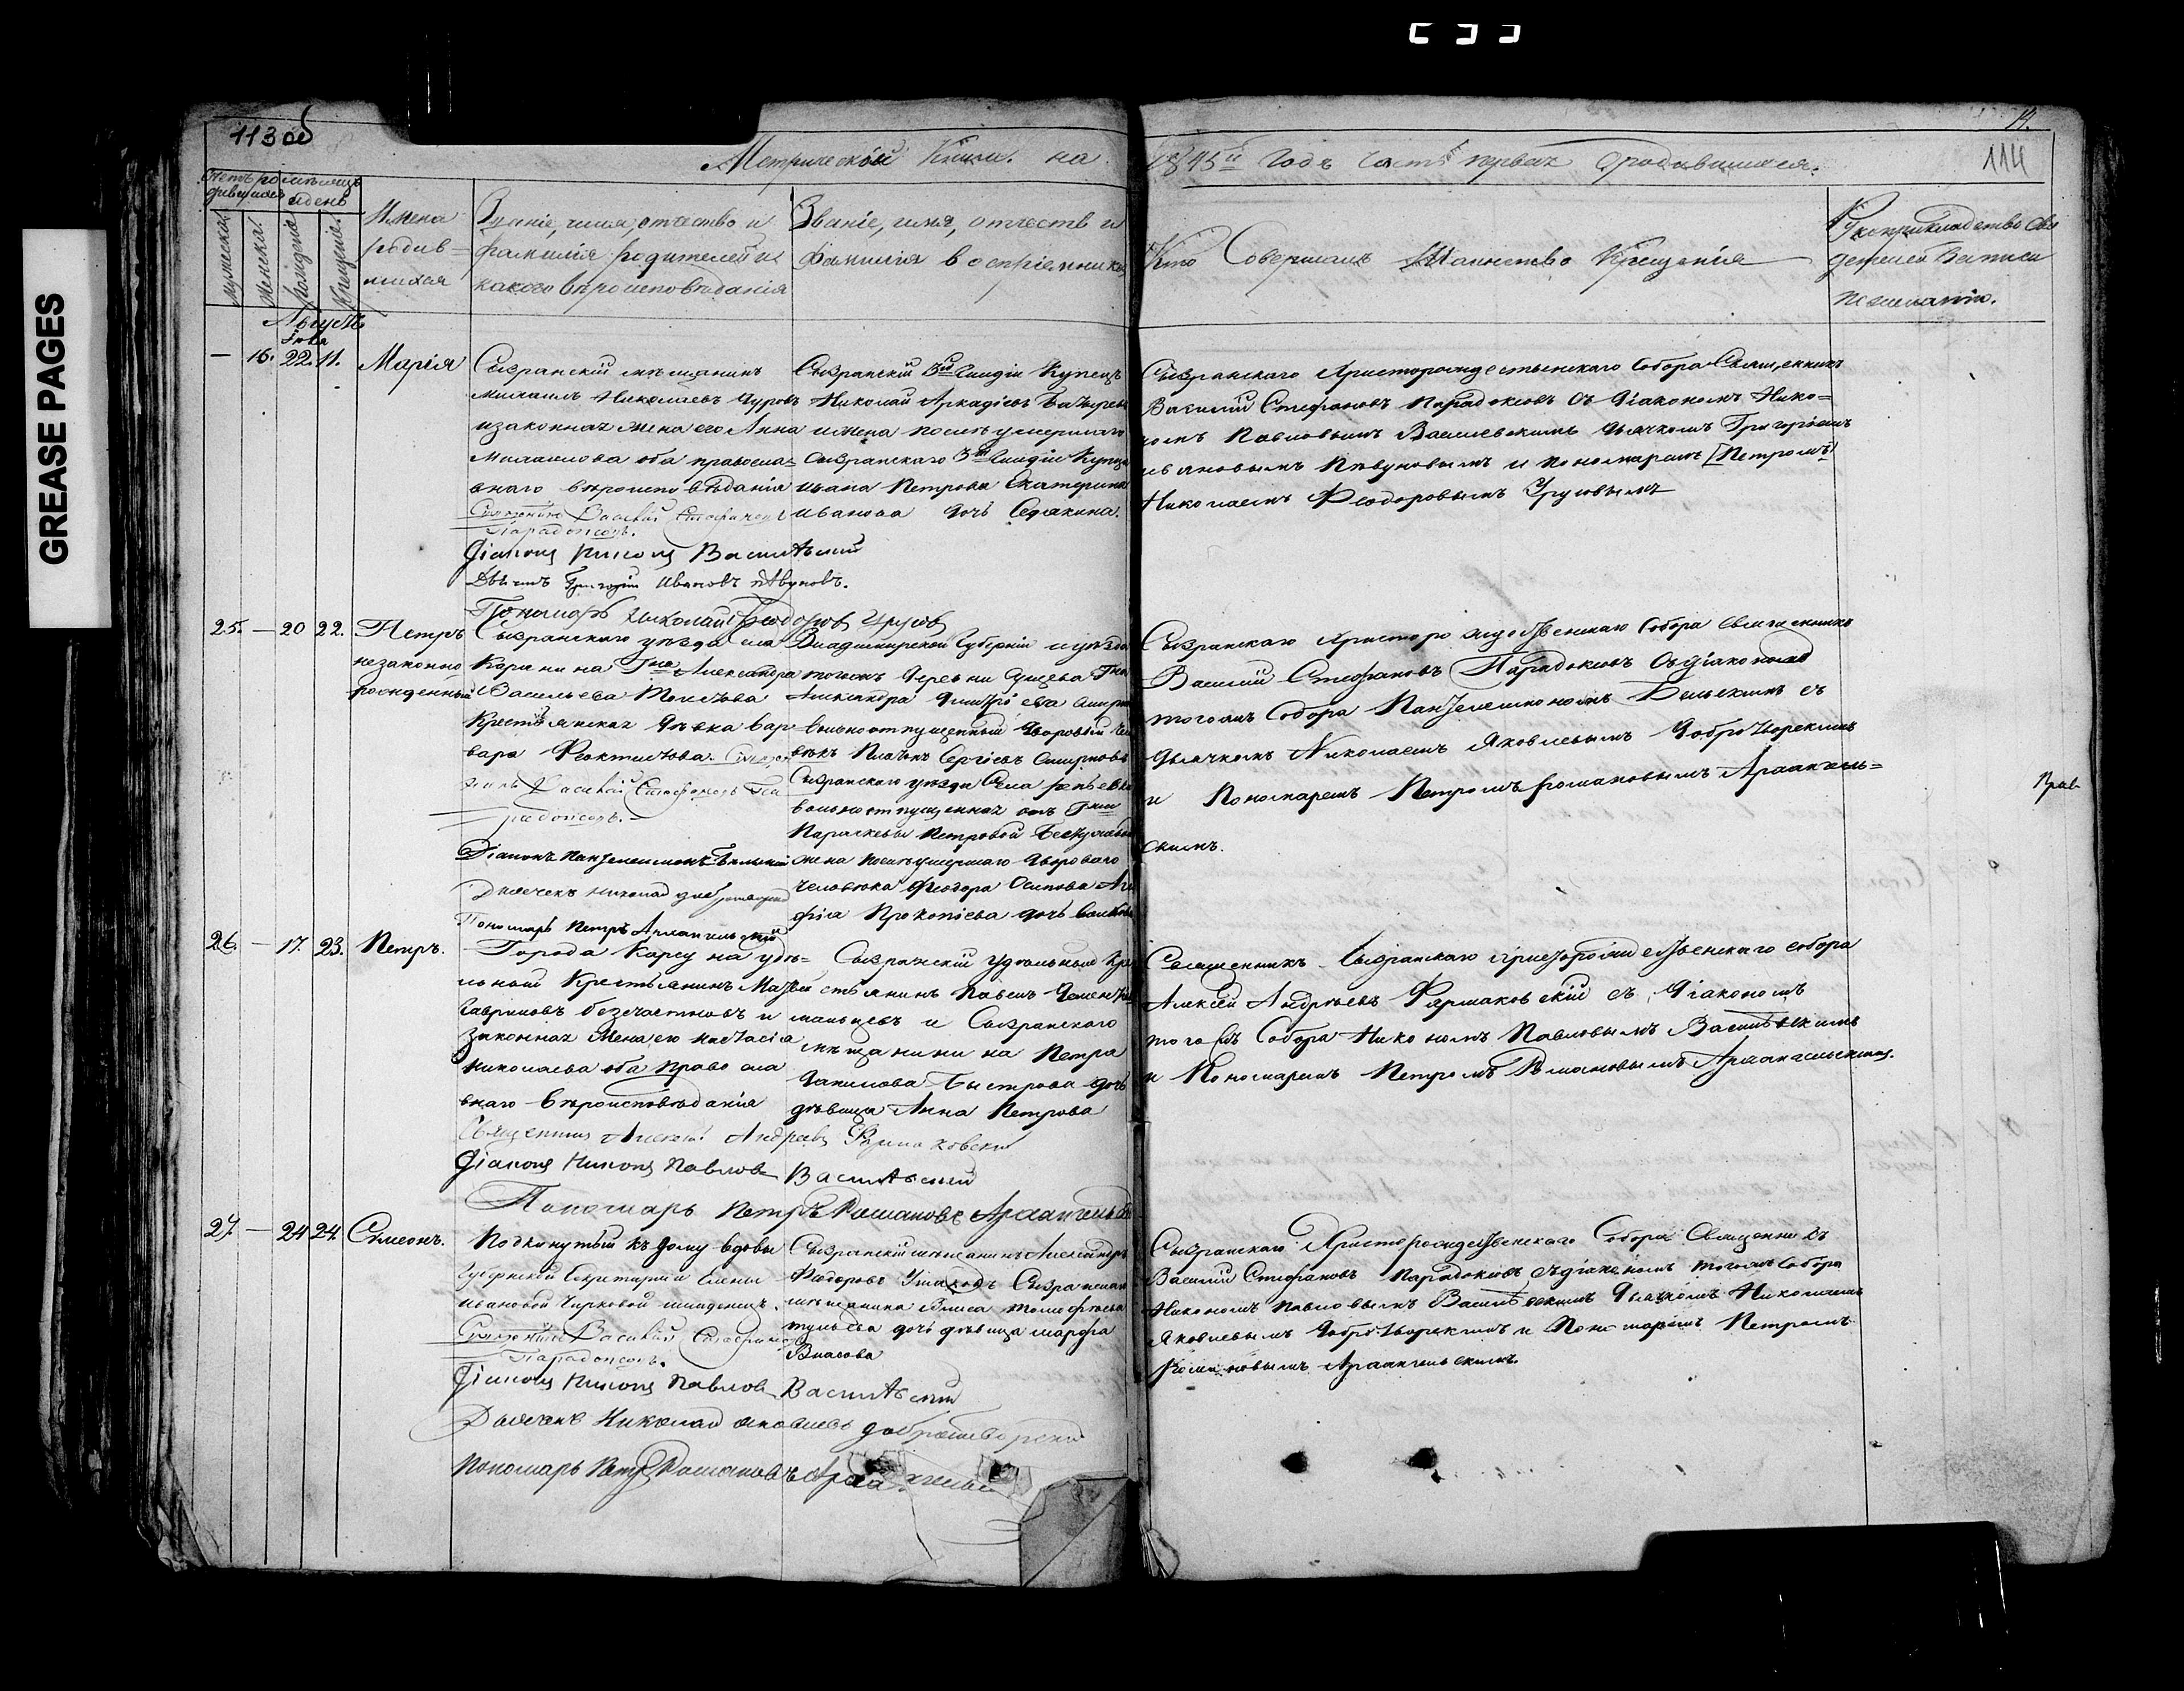 GREASE PAGES
113 об
19.
114
Метрической Книги на
1845й Годъ Часть первая о родившихся.
Счетъ родившихся
мѣсяцъ и день
Мужеска.
Женска.
Рожденія
Крещенія.
Имена родив-
шихся
Званіе, имя, отчество и
фамилія родителей и
какого вѣроисповѣданія
Званіе, имя, отчеств и
фамилія воспріемнико
Кто Совершалъ Таинство Крещенія
Рукоприкладство Сви
детелей Записи
по желанію.
Августъ
— 16. 22. 11. Марія
Сызранскій мѣщанинъ
Михаилъ Николаевъ Чуровъ
и законная жена его Анна
Михаилова оба правосла-
внаго вѣроисповѣданія
Священникъ Василій Стефановъ
Парадоксовъ.
Діаконъ Никонъ Васильевскій
Дьячекъ Григорій Ивановъ Пѣвуновъ.
Пономарь Николай Ѳеодоровъ Урусовъ
Сызранскій 3й Гилдіи Купецъ
Николай Аркадіевъ
и жена послѣ умершаго
Сызранскаго 3й Гилдіи Купца
Ивана Петрова Екатерина
Иванова дочь Седякина.
Сызранскаго Христорождественскаго Собора Священникъ
Василій Стефановъ Парадоксовъ съ Діакономъ Нико-
номъ Павловымъ Васильевскимъ дьячкомъ Григорьемъ
Ивановымъ Пѣвуновымъ и пономаремъ [Петромъ]
Николаемъ Феодоровымъ Урусовымъ
25. — 20 22. Петръ
незаконно
рожденный
Сызранскаго уѣзда села
Гжи Александра
Васильева Толстова
Крестьянская дѣвка Вар-
вара Феоктистова. Священ
никъ Василій Стефановъ Па
радоксовъ.
Діаконъ Пантелеимонъ Бѣльскій
Дьячекъ Николай Добротворский
Пономарь Петръ Архангельский
Владимирской Губерніи и уѣзда
Александра Дмитріева
вольноотпущенный дворовый чело
вѣкъ Платонъ Сергіевъ Смирновъ
Сызранскаго уѣзда Села Рѣпьевки
вольноотпущенная отъ Гжи
Параскевы Петровой
жена послѣ умершаго двороваго
человека Феодора Осипова
Прокопіева дочь
Сызранскаго Христорождественскаго Собора Священникъ
Василій Стефановъ Парадоксовъ съ діакономъ
тогожъ Собора Пантелеимономъ Бельскимъ съ
дьячкомъ Николаемъ Яковлевымъ Добротворскимъ
и Пономаремъ Петромъ Романовымъ Архангель-
скимъ.
Прав-
26. — 17. 23. Петръ.
Города Карсуна удѣ-
льный Крестьянинъ Матвѣй
Гавриловъ Безчастновъ и
законная жена его Настасія
Николаева оба право сла
внаго вѣроисповѣданія
Священникъ Алексей Андреевъ Фармаковский
Діаконъ Никонъ Павловъ Васильевскій
Пономарь Петръ Романовъ Архангельск
Сызранскій удѣльный кре
стьянинъ Павелъ
Мальцевъ и Сызранскаго
мѣщанина Петра
Данилова Быстрова дочь
дѣвица Анна Петрова
Священникъ Сызранскаго Христорождественскаго собора
Алексей Андреевъ Фармаковскій съ Діакономъ
тогожъ Собора Никономъ Павловымъ Васильевскимъ
и Пономаремъ Петромъ Романовымъ Архангельскимъ.
27. — 24 24. Симеонъ.
Подкинутый къ дому вдовы
Губернской Секретарши Елены
Ивановой Чирковой младенецъ.
Священникъ Василій Стефановъ
Парадоксовъ.
Діаконъ Никонъ Павловъ Васильевскій
Дьячекъ Николай Яковлевъ Добротворский
Пономарь Петръ Романовъ Архангельск
Сызранскій мѣщанинъ Александръ
Федоровъ Ушаковъ Сызранскаго
мѣщанина Власа Тимофѣева
дочь дѣвица Марфа
Власова
Сызранскаго Христорождественскаго Собора Священникъ
Василій Стефановъ Парадоксовъ съ діакономъ тогожъ Собора
Никономъ Павловымъ Васильевскимъ Дьячкомъ Николаемъ
Яковлевымъ Добротворскимъ и Пономаремъ Петромъ
Романовымъ Архангельскимъ.